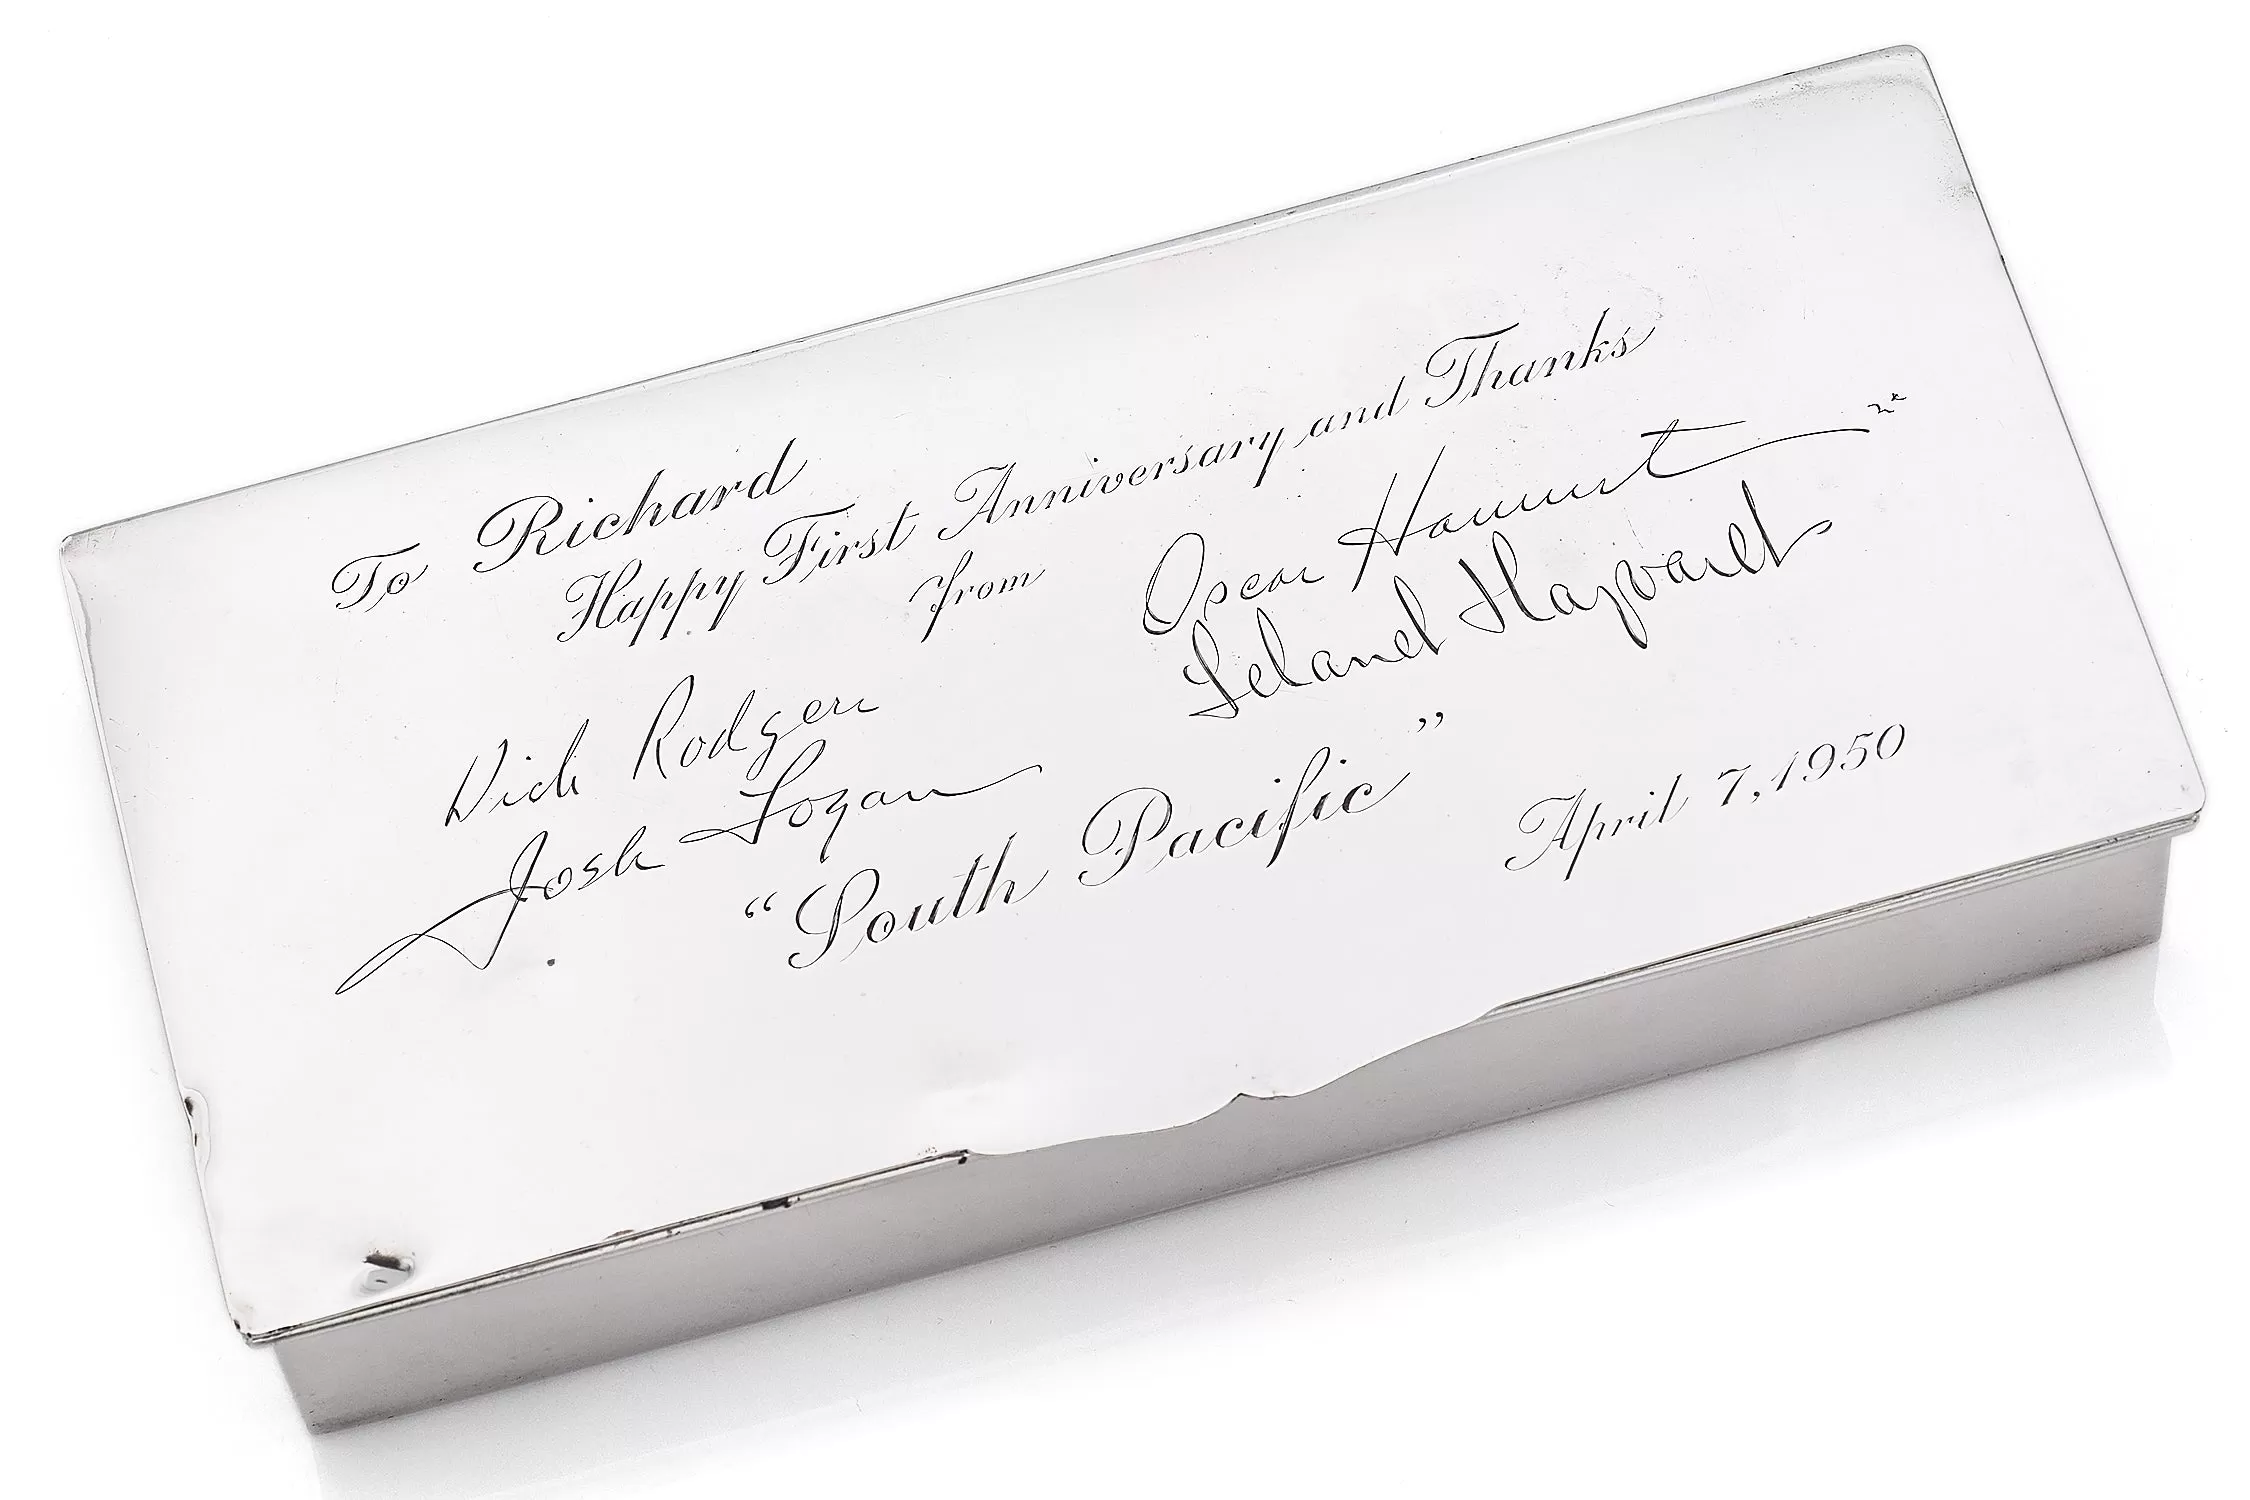 To Richard
Happy First Anniversary and Thanks
from
Dick Rodgers
Oscar Hammerstein 2nd
Josh Logan
Leland Hayward
"South Pacific"
April 7, 1950